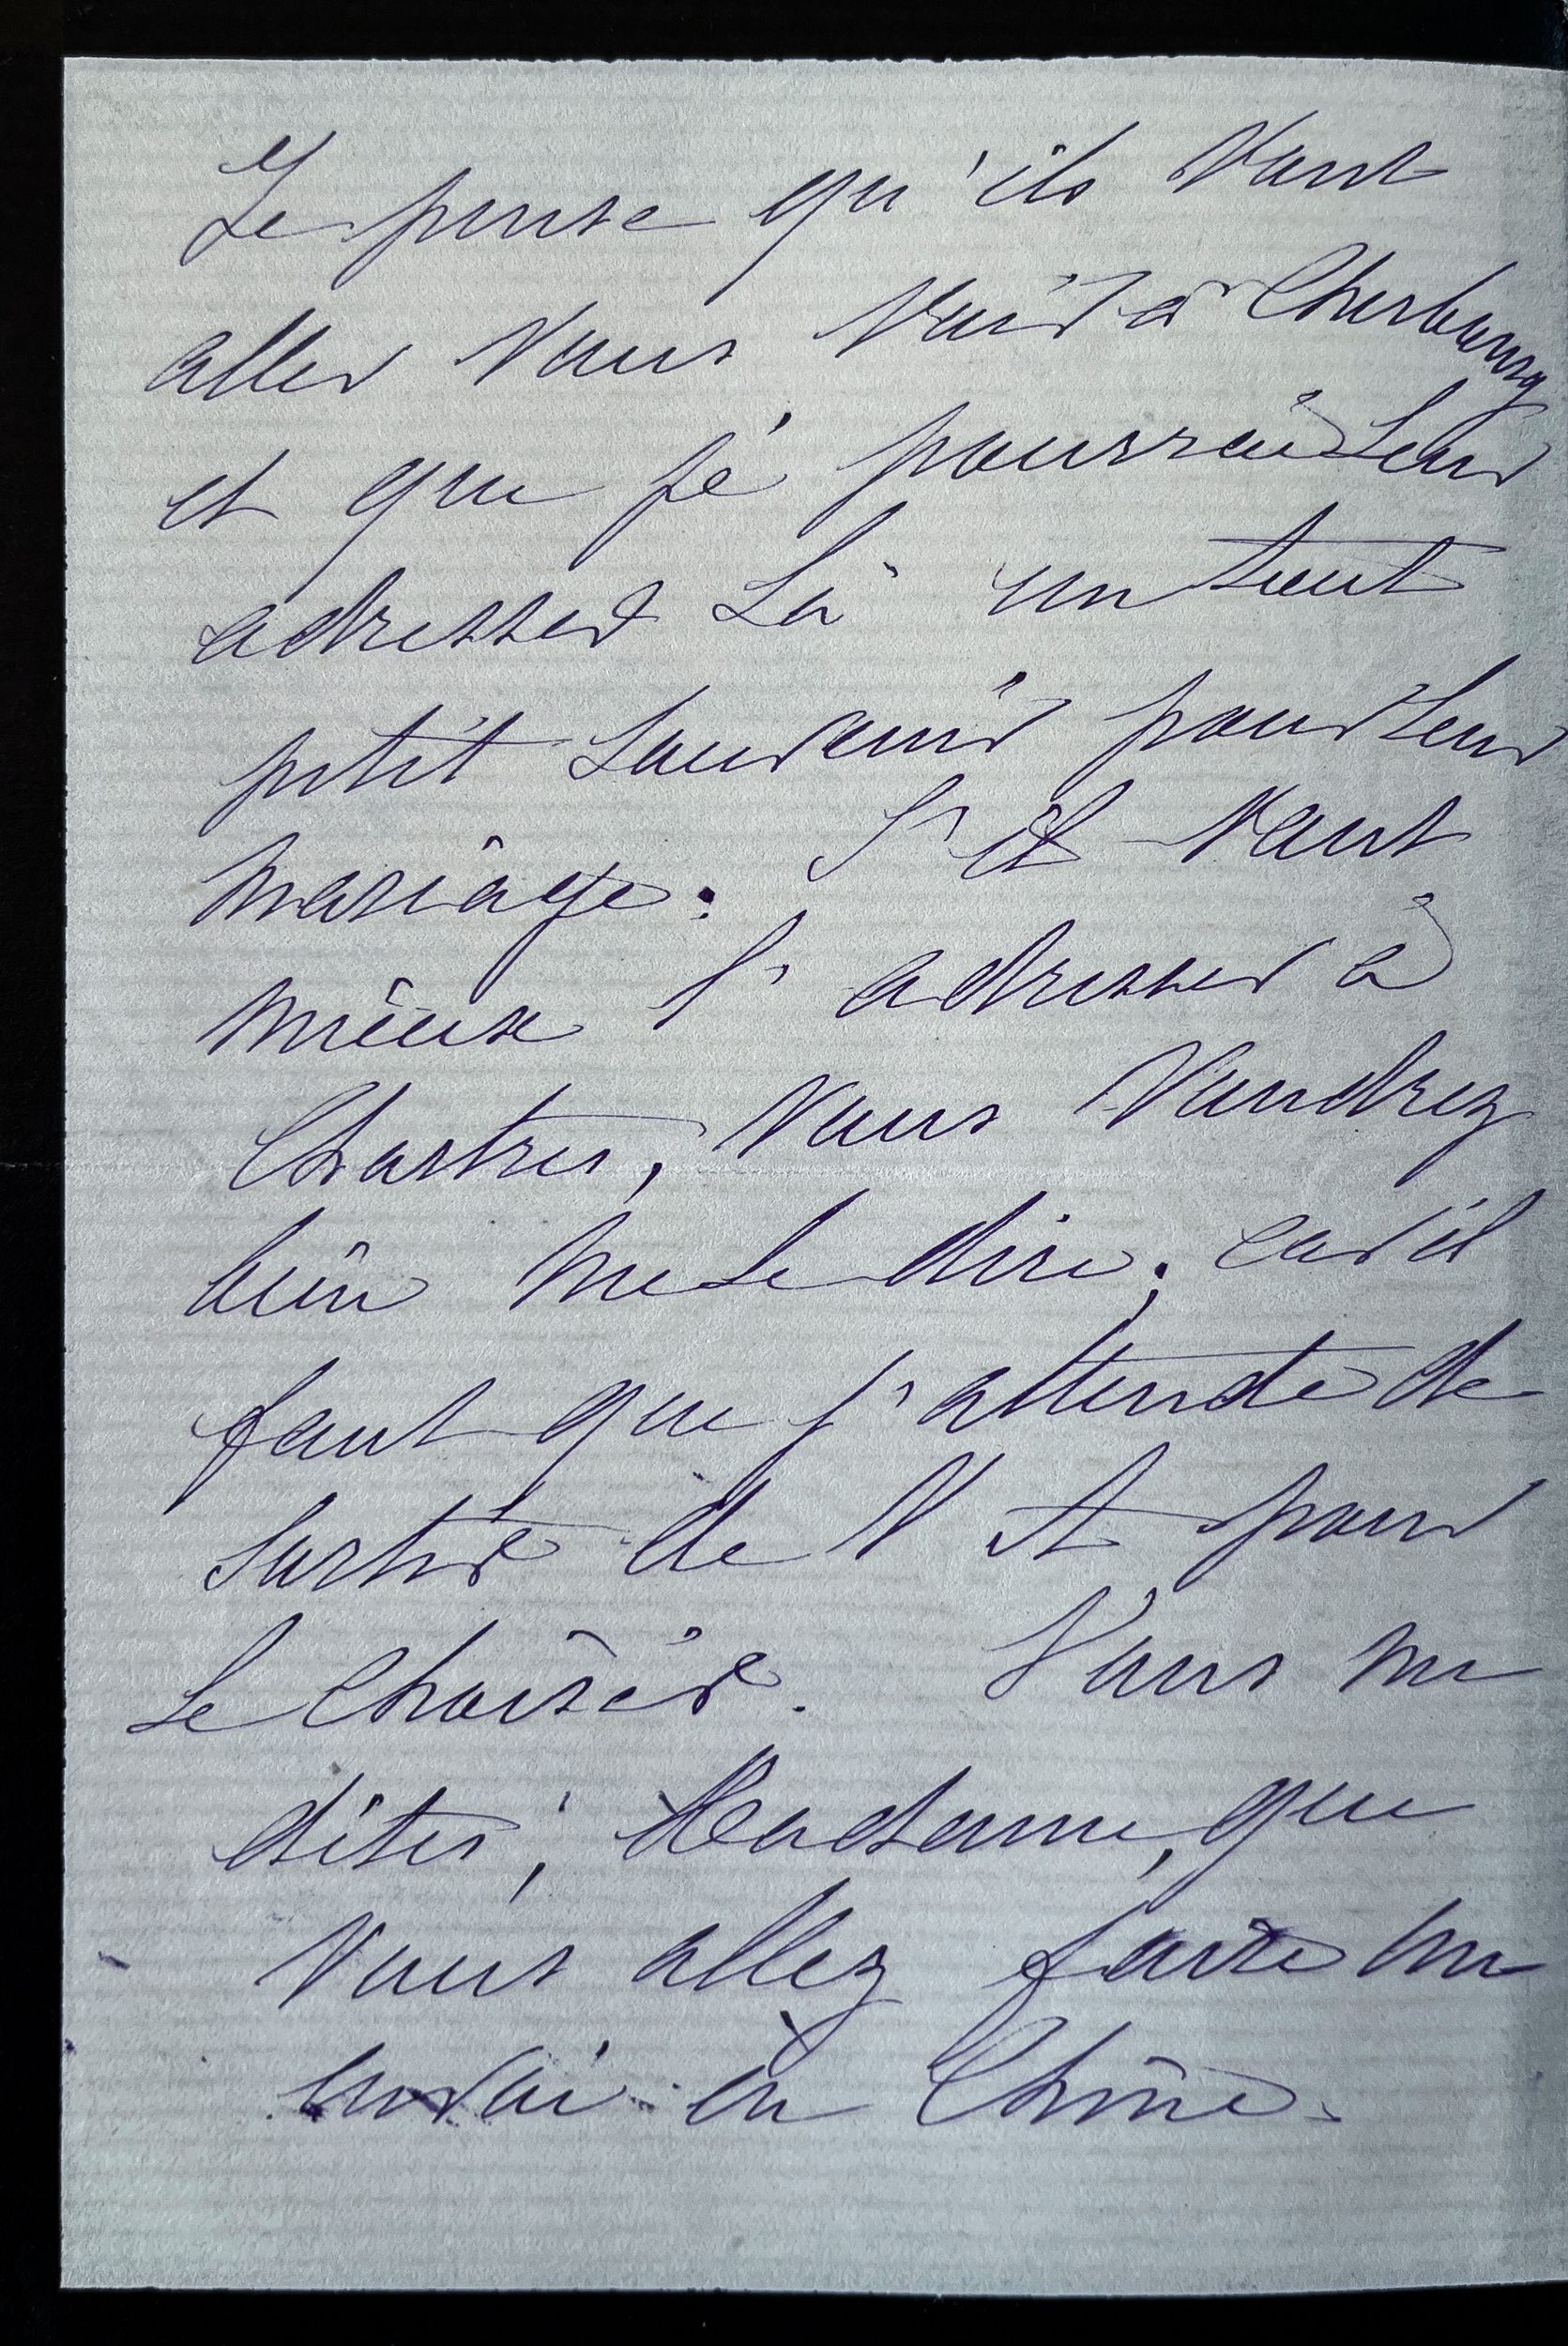 Je pense qu'ils vont
aller vous voir à Cherbourg
et que je pourrai leur
adresser là un tout
petit souvenir pour leur
mariage. S'il vaut
mieux l'adresser à
Chartres, vous voudrez
bien me le dire; car il
faut que j'attende de
sortir de V et pour
le choisir. Vous me
dites, Madame, que
vous allez faire un
envoi en Chine.